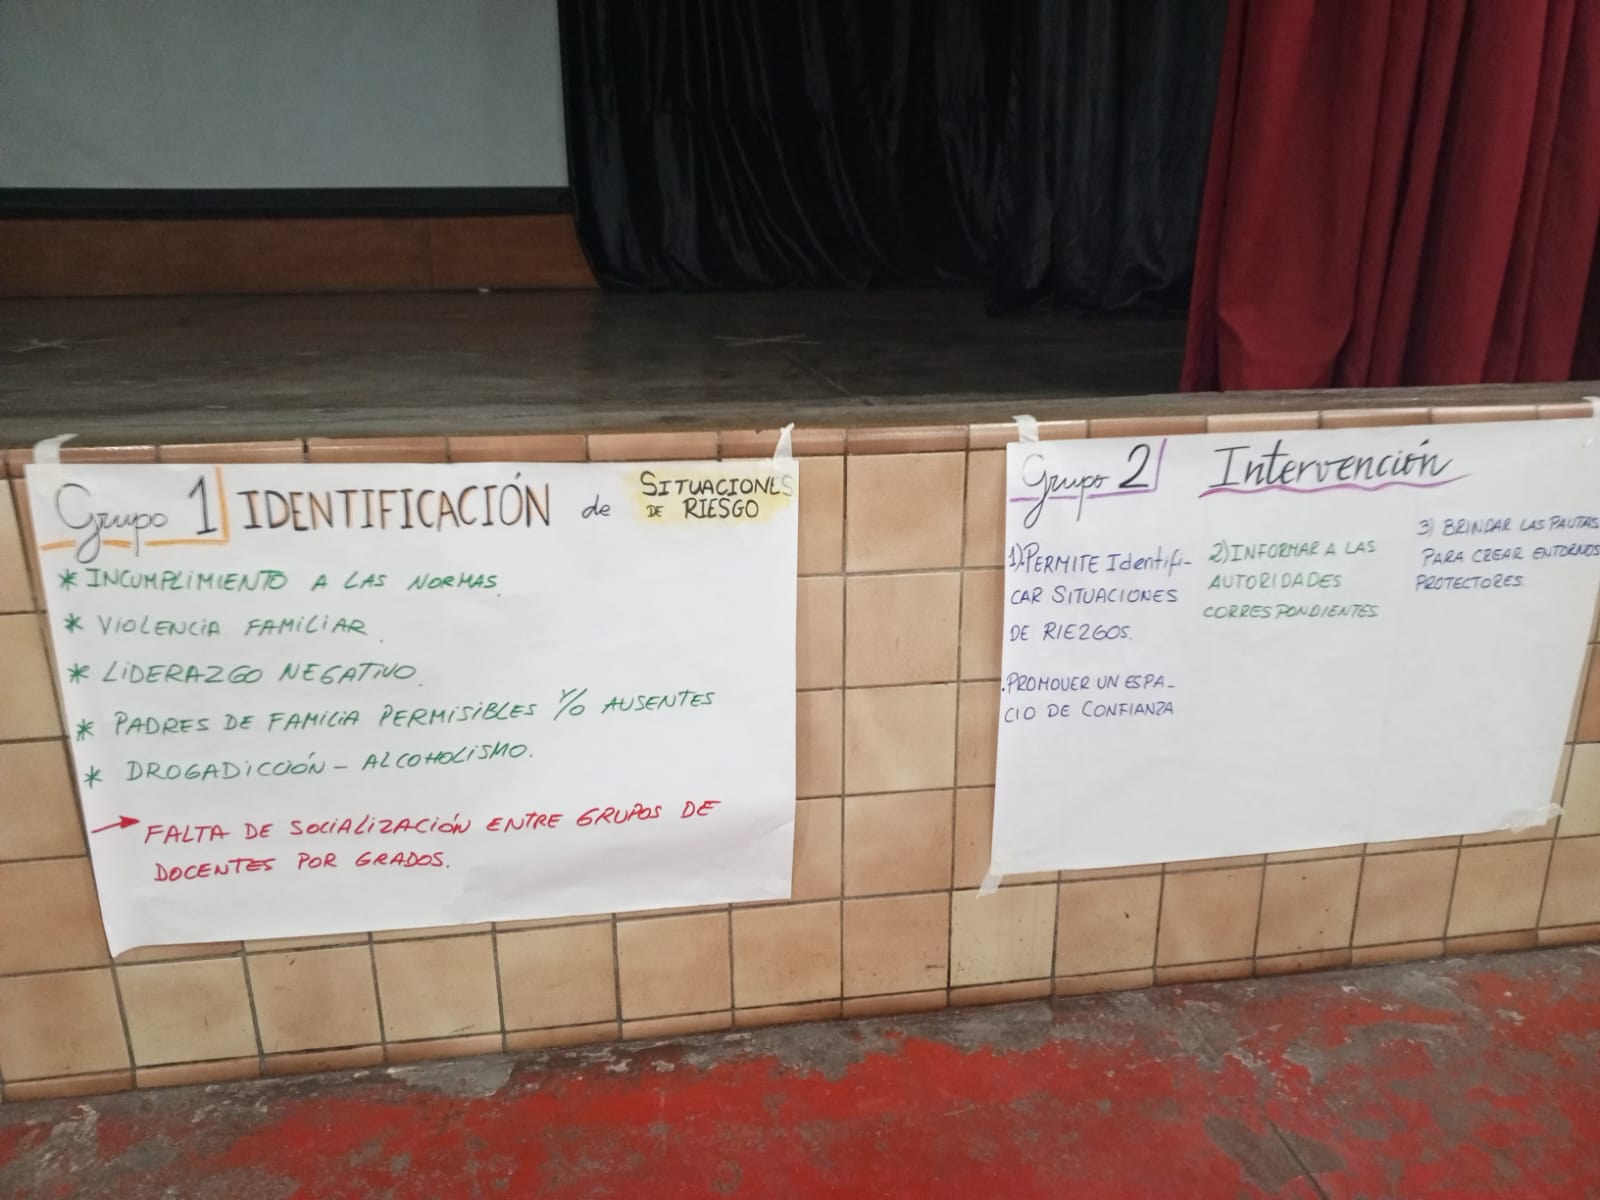 Grupo 1 IDENTIFICACIÓN de SITUACIONES
DE RIESGO
* INCUMPLIMIENTO A LAS NORMAS.
* VIOLENCIA FAMILIAR.
* LIDERAZGO NEGATIVO.
* PADRES DE FAMILIA PERMISIBLES Y/O AUSENTES
* DROGADICCIÓN - ALCOHOLISMO.
→ FALTA DE SOCIALIZACIÓN ENTRE GRUPOS DE
DOCENTES POR GRADOS.
Grupo 2 Intervención
1) PERMITE Identifi-
CAR SITUACIONES
DE RIEZGOS.
.PROMOVER UN ESPA-
CIO DE CONFIANZA
2) INFORMAR A LAS
AUTORIDADES
CORRESPONDIENTES
3) BRINDAR LAS PAUTAS
PARA CREAR ENTORNOS
PROTECTORES.